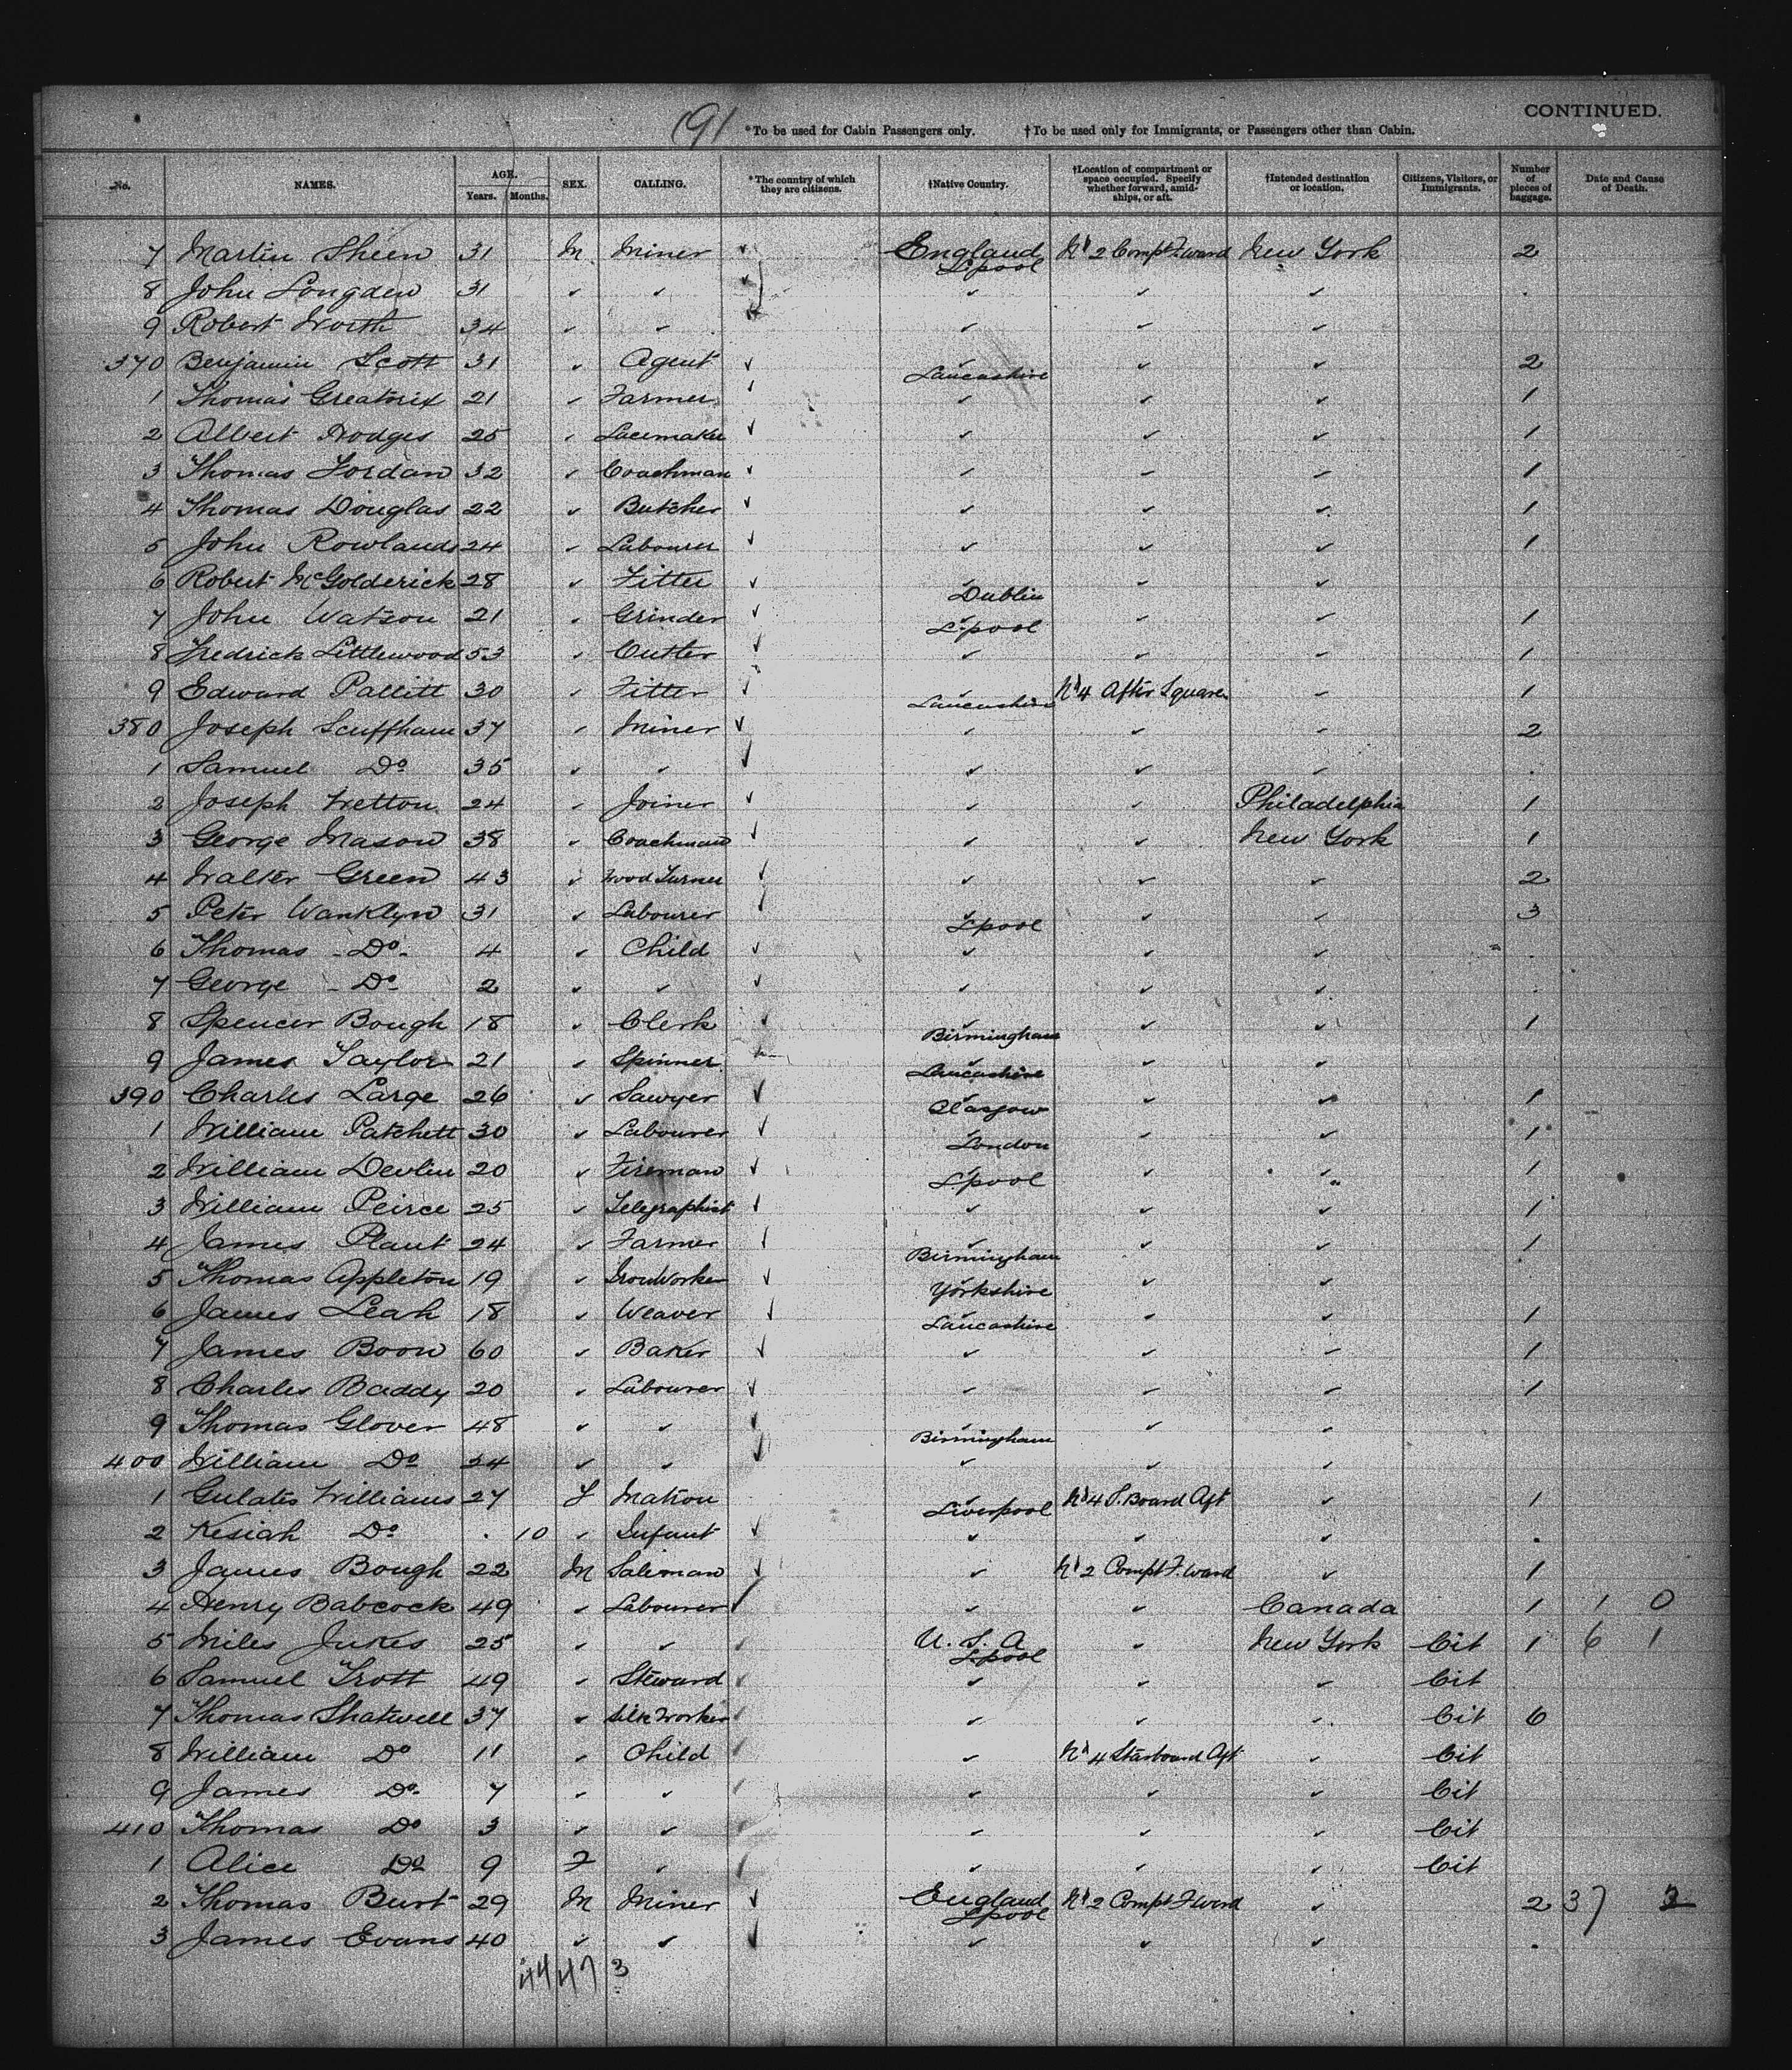 191 *To be used for Cabin Passengers only. †To be used only for Immigrants, or Passengers other than Cabin. CONTINUED.
No. NAMES. AGE. Years. Months. SEX. CALLING. *The country of which they are citizens. †Native Country. †Location of compartment or space occupied. Specify whether forward, amid-ships, or aft. †Intended destination or location. Citizens, Visitors, or Immigrants. Number of pieces of baggage. Date and Cause of Death.
7 Martin Sheen 31 M Miner ✓ England L'pool No 2 Compt F.ward New York 2
8 John Longden 31 ✓ ✓ ✓ ✓ ✓ ✓
9 Robert Worth 34 ✓ ✓ ✓ ✓ ✓ ✓
370 Benjamin Scott 31 ✓ Agent ✓ ✓ Lancashire ✓ ✓ 2
1 Thomas Greatrix 21 ✓ Farmer ✓ ✓ ✓ ✓ 1
2 Albert Hodges 25 ✓ Lacemaker ✓ ✓ ✓ ✓ 1
3 Thomas Jordan 32 ✓ Coachman ✓ ✓ ✓ ✓ 1
4 Thomas Douglas 22 ✓ Butcher ✓ ✓ ✓ ✓ 1
5 John Rowlands 24 ✓ Labourer ✓ ✓ ✓ ✓ 1
6 Robert McGolderick 28 ✓ Fitter ✓ ✓ Dublin ✓ ✓
7 John Watson 21 ✓ Grinder ✓ ✓ L'pool ✓ ✓ 1
8 Fredrick Littlewood 53 ✓ Cutler ✓ ✓ ✓ ✓ 1
9 Edward Pallitt 30 ✓ Fitter ✓ ✓ Lancashire No 4 After Square ✓ 1
380 Joseph Scuffham 37 ✓ Miner ✓ ✓ ✓ ✓ 2
1 Samuel Do 35 ✓ ✓ ✓ ✓ ✓ ✓
2 Joseph Wetton 24 ✓ Joiner ✓ ✓ ✓ Philadelphia 1
3 George Mason 38 ✓ Coachman ✓ ✓ ✓ New York 1
4 Walter Green 43 ✓ Wood Turner ✓ ✓ ✓ ✓ 2
5 Peter Wanklyn 31 ✓ Labourer ✓ ✓ L'pool ✓ ✓ 3
6 Thomas Do 4 ✓ Child ✓ ✓ ✓ ✓
7 George Do 2 ✓ ✓ ✓ ✓ ✓ ✓
8 Spencer Bough 18 ✓ Clerk ✓ ✓ Birmingham ✓ ✓ 1
9 James Taylor 21 ✓ Spinner ✓ Lancashire ✓ ✓
390 Charles Large 26 ✓ Sawyer ✓ ✓ Glasgow ✓ ✓ 1
1 William Patchett 30 ✓ Labourer ✓ ✓ London ✓ ✓ 1
2 William Devlin 20 ✓ Fireman ✓ ✓ L'pool ✓ ✓ 1
3 William Peirce 25 ✓ Telegraphist ✓ ✓ ✓ ✓ 1
4 James Plant 24 ✓ Farmer ✓ ✓ Birmingham ✓ ✓ 1
5 Thomas Appleton 19 ✓ Iron Worker ✓ ✓ Yorkshire ✓ ✓
6 James Leah 18 ✓ Weaver ✓ ✓ Lancashire ✓ ✓ 1
7 James Boon 60 ✓ Baker ✓ ✓ ✓ ✓ 1
8 Charles Baddy 20 ✓ Labourer ✓ ✓ ✓ ✓ 1
9 Thomas Glover 48 ✓ ✓ ✓ ✓ Birmingham ✓ ✓
400 William Do 24 ✓ ✓ ✓ ✓ ✓ ✓
1 Williams 27 F Matron ✓ Liverpool No 4 S. Board Aft ✓ 1
2 Kesiah Do 10 ✓ Infant ✓ ✓ ✓ ✓
3 James Bough 22 M Salesman ✓ ✓ No 2 Compt F.ward ✓ 1
4 Henry Babcock 49 ✓ Labourer ✓ ✓ ✓ Canada 1 1 0
5 Miles Jukes 25 ✓ ✓ ✓ U. S. A L'pool ✓ New York Cit 1 6 1
6 Samuel Trott 49 ✓ Steward ✓ ✓ ✓ ✓ Cit
7 Thomas Shatwell 37 ✓ Silk Worker ✓ ✓ ✓ ✓ Cit 6
8 William Do 11 ✓ Child ✓ ✓ No 4 Starboard Aft ✓ Cit
9 James Do 7 ✓ ✓ ✓ ✓ ✓ ✓ Cit
410 Thomas Do 3 ✓ ✓ ✓ ✓ ✓ ✓ Cit
1 Alice Do 9 F ✓ ✓ ✓ ✓ ✓ Cit
2 Thomas Burt 29 M Miner ✓ England L'pool No 2 Compt F.ward ✓ 2 37 2
3 James Evans 40 ✓ ✓ ✓ ✓ ✓ ✓
44 47 3